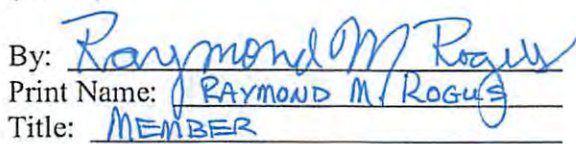 By: Raymond M Rogus
Print Name: RAYMOND M. ROGUS
Title: MEMBER